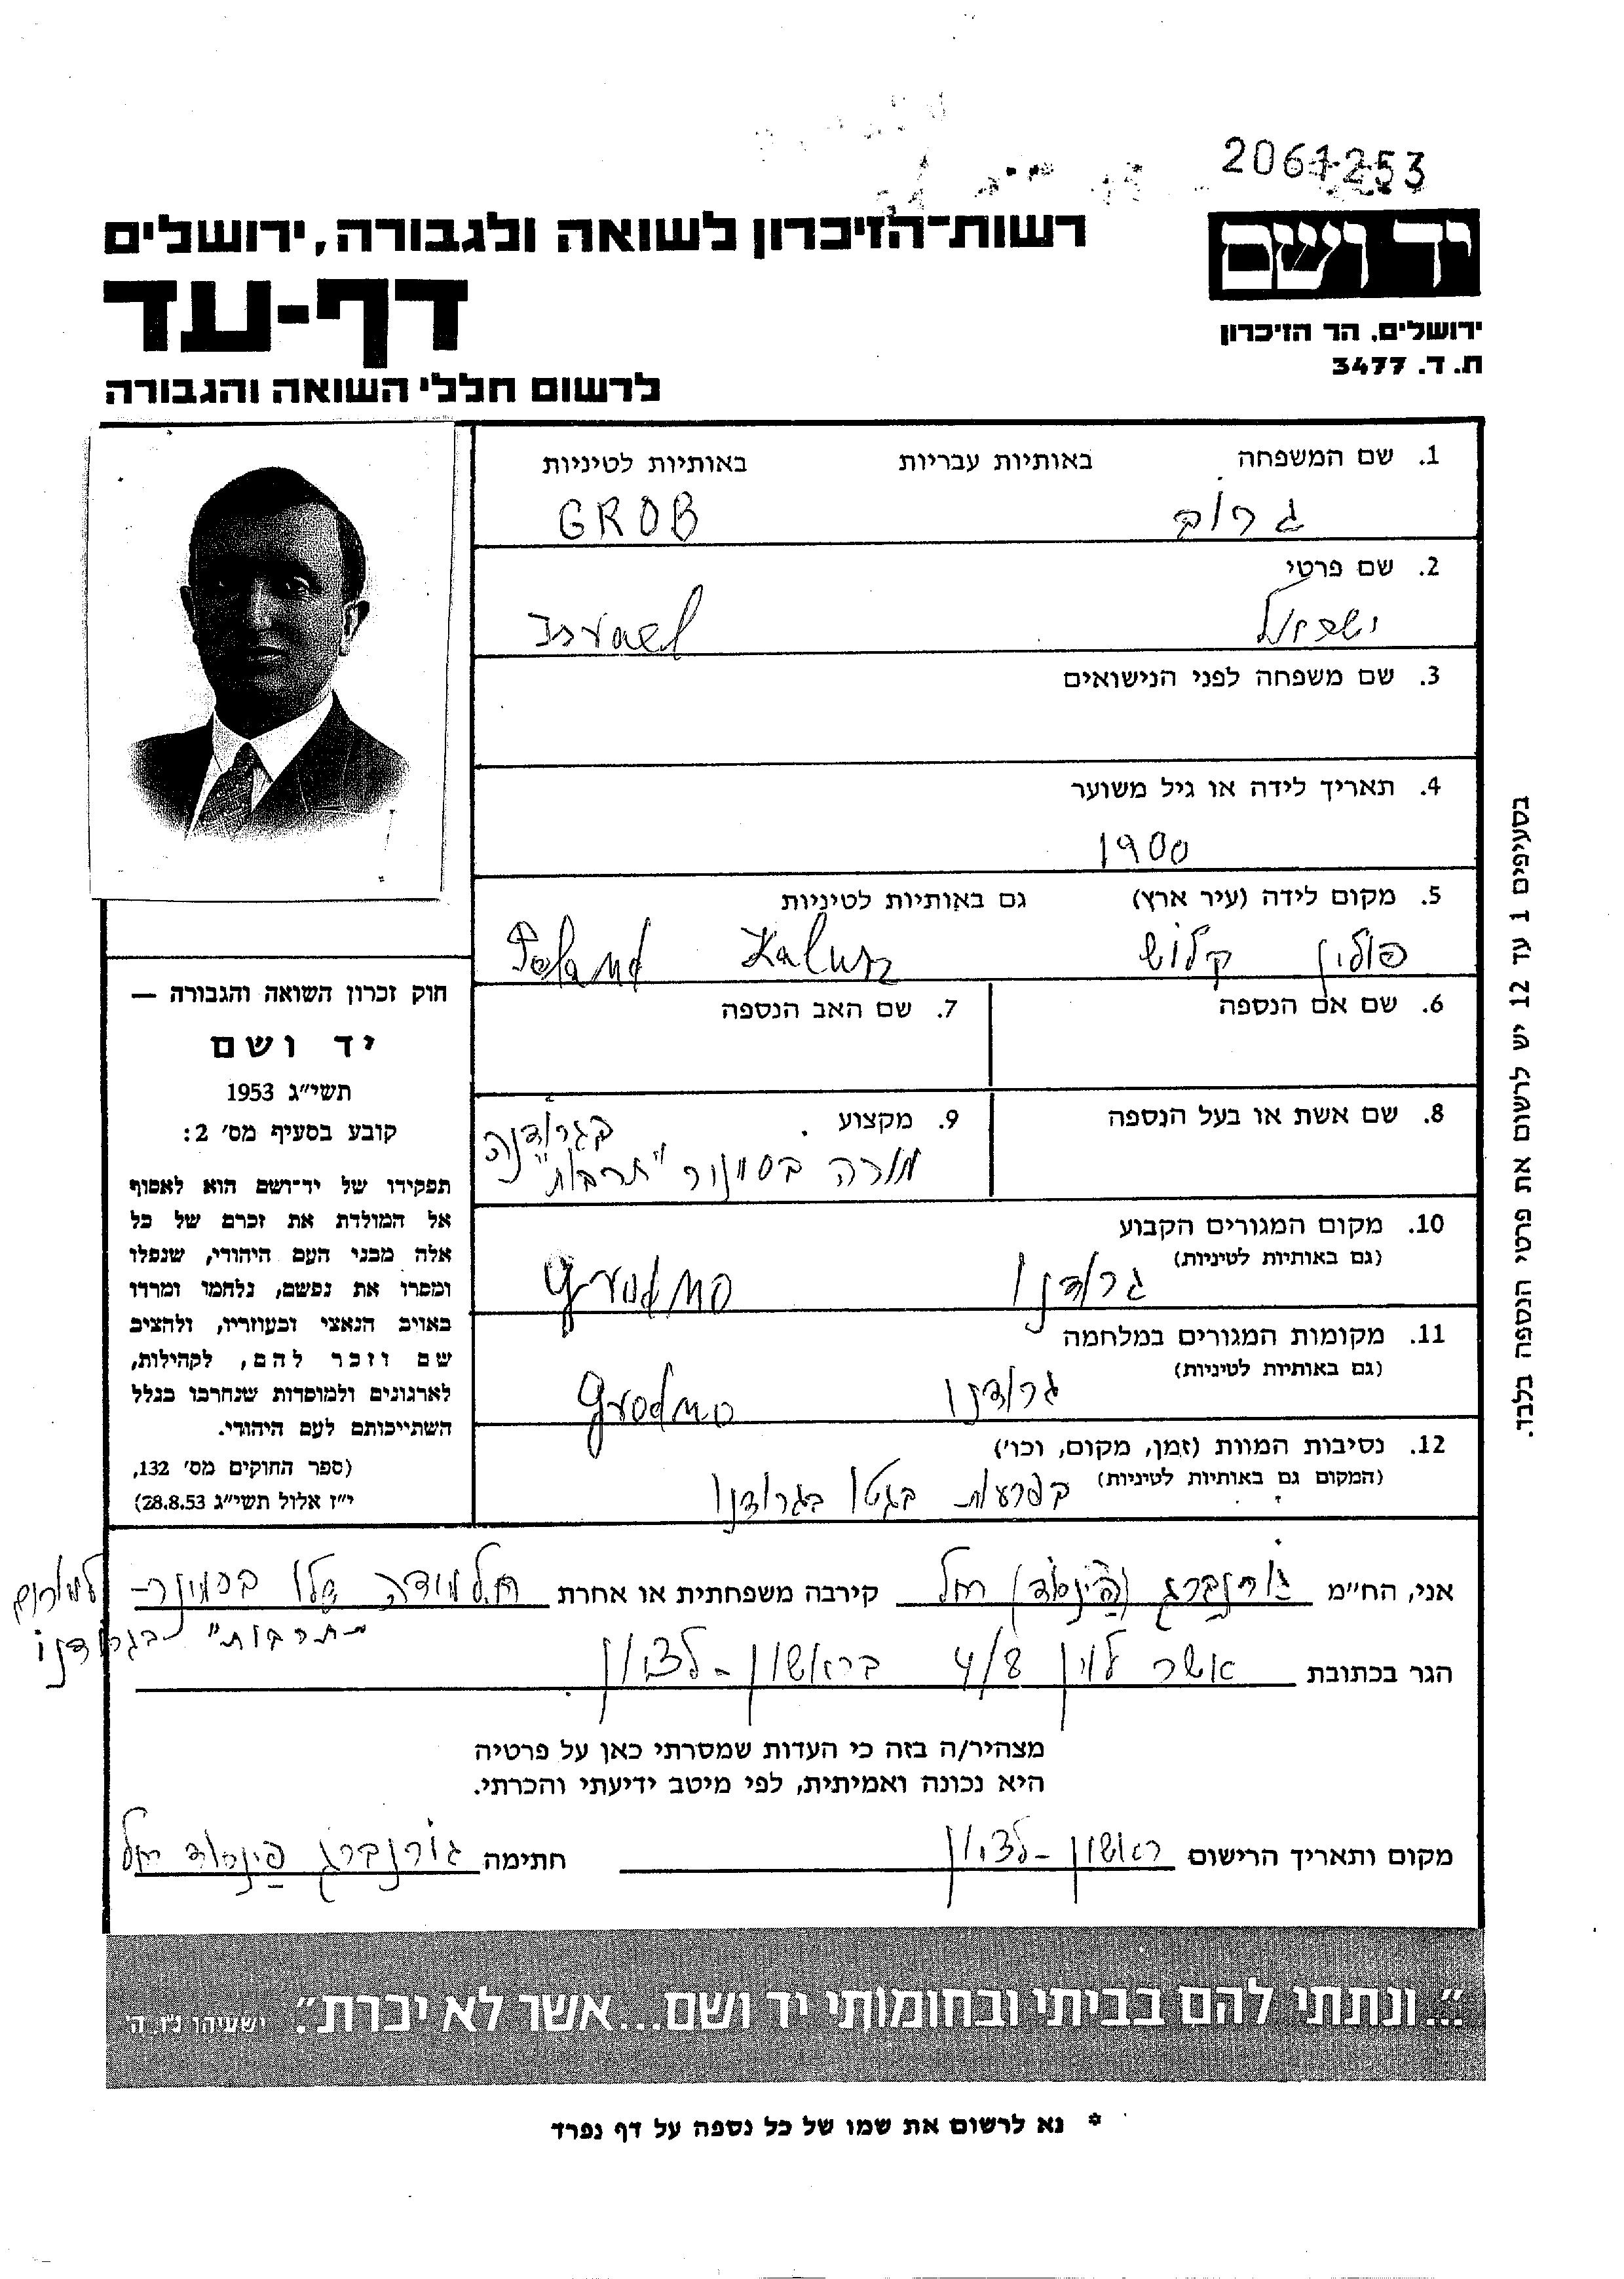 2061253
יד ושם
רשות-הזיכרון לשואה ולגבורה, ירושלים
דף-עד
ירושלים, הר הזיכרון
ת. ד. 3477
לרשום חללי השואה והגבורה
1. שם המשפחה באותיות עבריות באותיות לטיניות
גרוב GROB
2. שם פרטי
ישראל Israel
3. שם משפחה לפני הנישואים
4. תאריך לידה או גיל משוער
1900
5. מקום לידה (עיר ארץ) גם באותיות לטיניות
פולין קלוש Kalusz Poland
6. שם אם הנספה 7. שם האב הנספה
8. שם אשת או בעל הנספה 9. מקצוע
מורה בסמינר "תרבות" בגרודנה
10. מקום המגורים הקבוע
(גם באותיות לטיניות)
גרודנו Grodno
11. מקומות המגורים במלחמה
(גם באותיות לטיניות)
גרודנו Grodno
12. נסיבות המוות (זמן, מקום, וכו')
(המקום גם באותיות לטיניות)
בפרעות בגטו בגרודנו
חוק זכרון השואה והגבורה —
יד ושם
תשי"ג 1953
קובע בסעיף מס' 2:
תפקידו של יד-ושם הוא לאסוף
אל המולדת את זכרם של כל
אלה מבני העם היהודי, שנפלו
ומסרו את נפשם, נלחמו ומרדו
באויב הנאצי ובעוזריו, ולהציב
שם וזכר להם, לקהילות,
לארגונים ולמוסדות שנחרבו בגלל
השתייכותם לעם היהודי.
(ספר החוקים מס' 132,
י"ז אלול תשי"ג 28.8.53)
בסעיפים 1 עד 12 יש לרשום את פרטי הנספה בלבד.
אני, הח"מ גורנברג רחל קירבה משפחתית או אחרת תלמידה שלו בסמינר למורים
"תרבות" בגרודנו
הגר בכתובת אשר לוין 4/8 בראשון-לציון
מצהיר/ה בזה כי העדות שמסרתי כאן על פרטיה
היא נכונה ואמיתית, לפי מיטב ידיעתי והכרתי.
מקום ותאריך הרישום ראשון-לציון חתימה גורנברג רחל
"...ונתתי להם בביתי ובחומותי יד ושם...אשר לא יכרת". ישעיהו נ"ו, ה'
* נא לרשום את שמו של כל נספה על דף נפרד